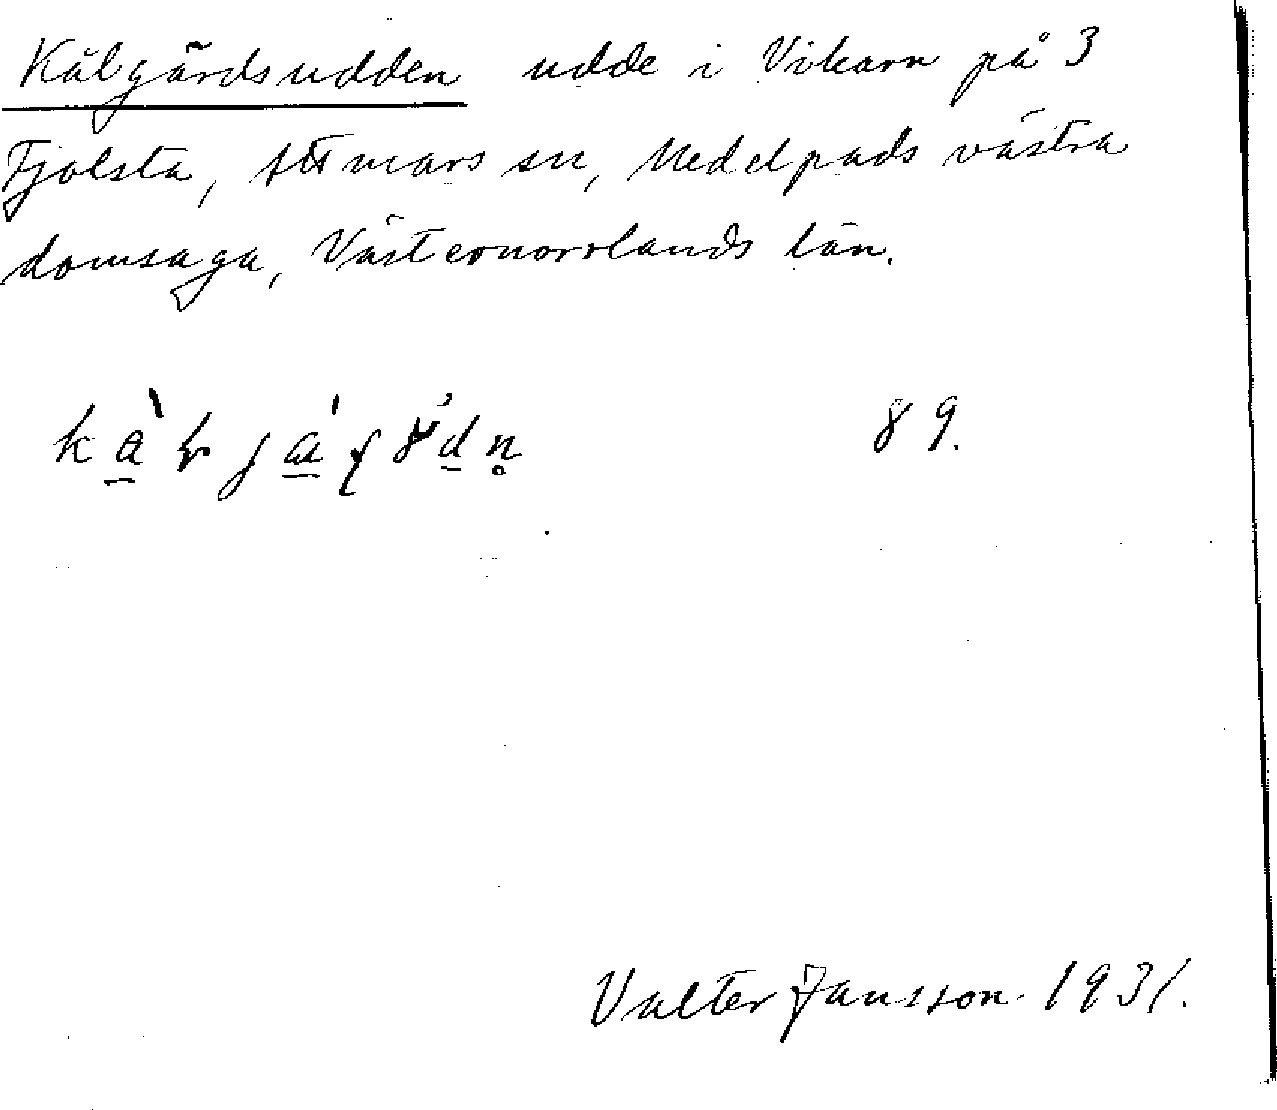 Kålgärdsudden udde i Vikarn på 3
Fjolsta, Attmars sn, Medelpads västra
domsaga, Västernorrlands län.
89.
Valter Jansson 1931.